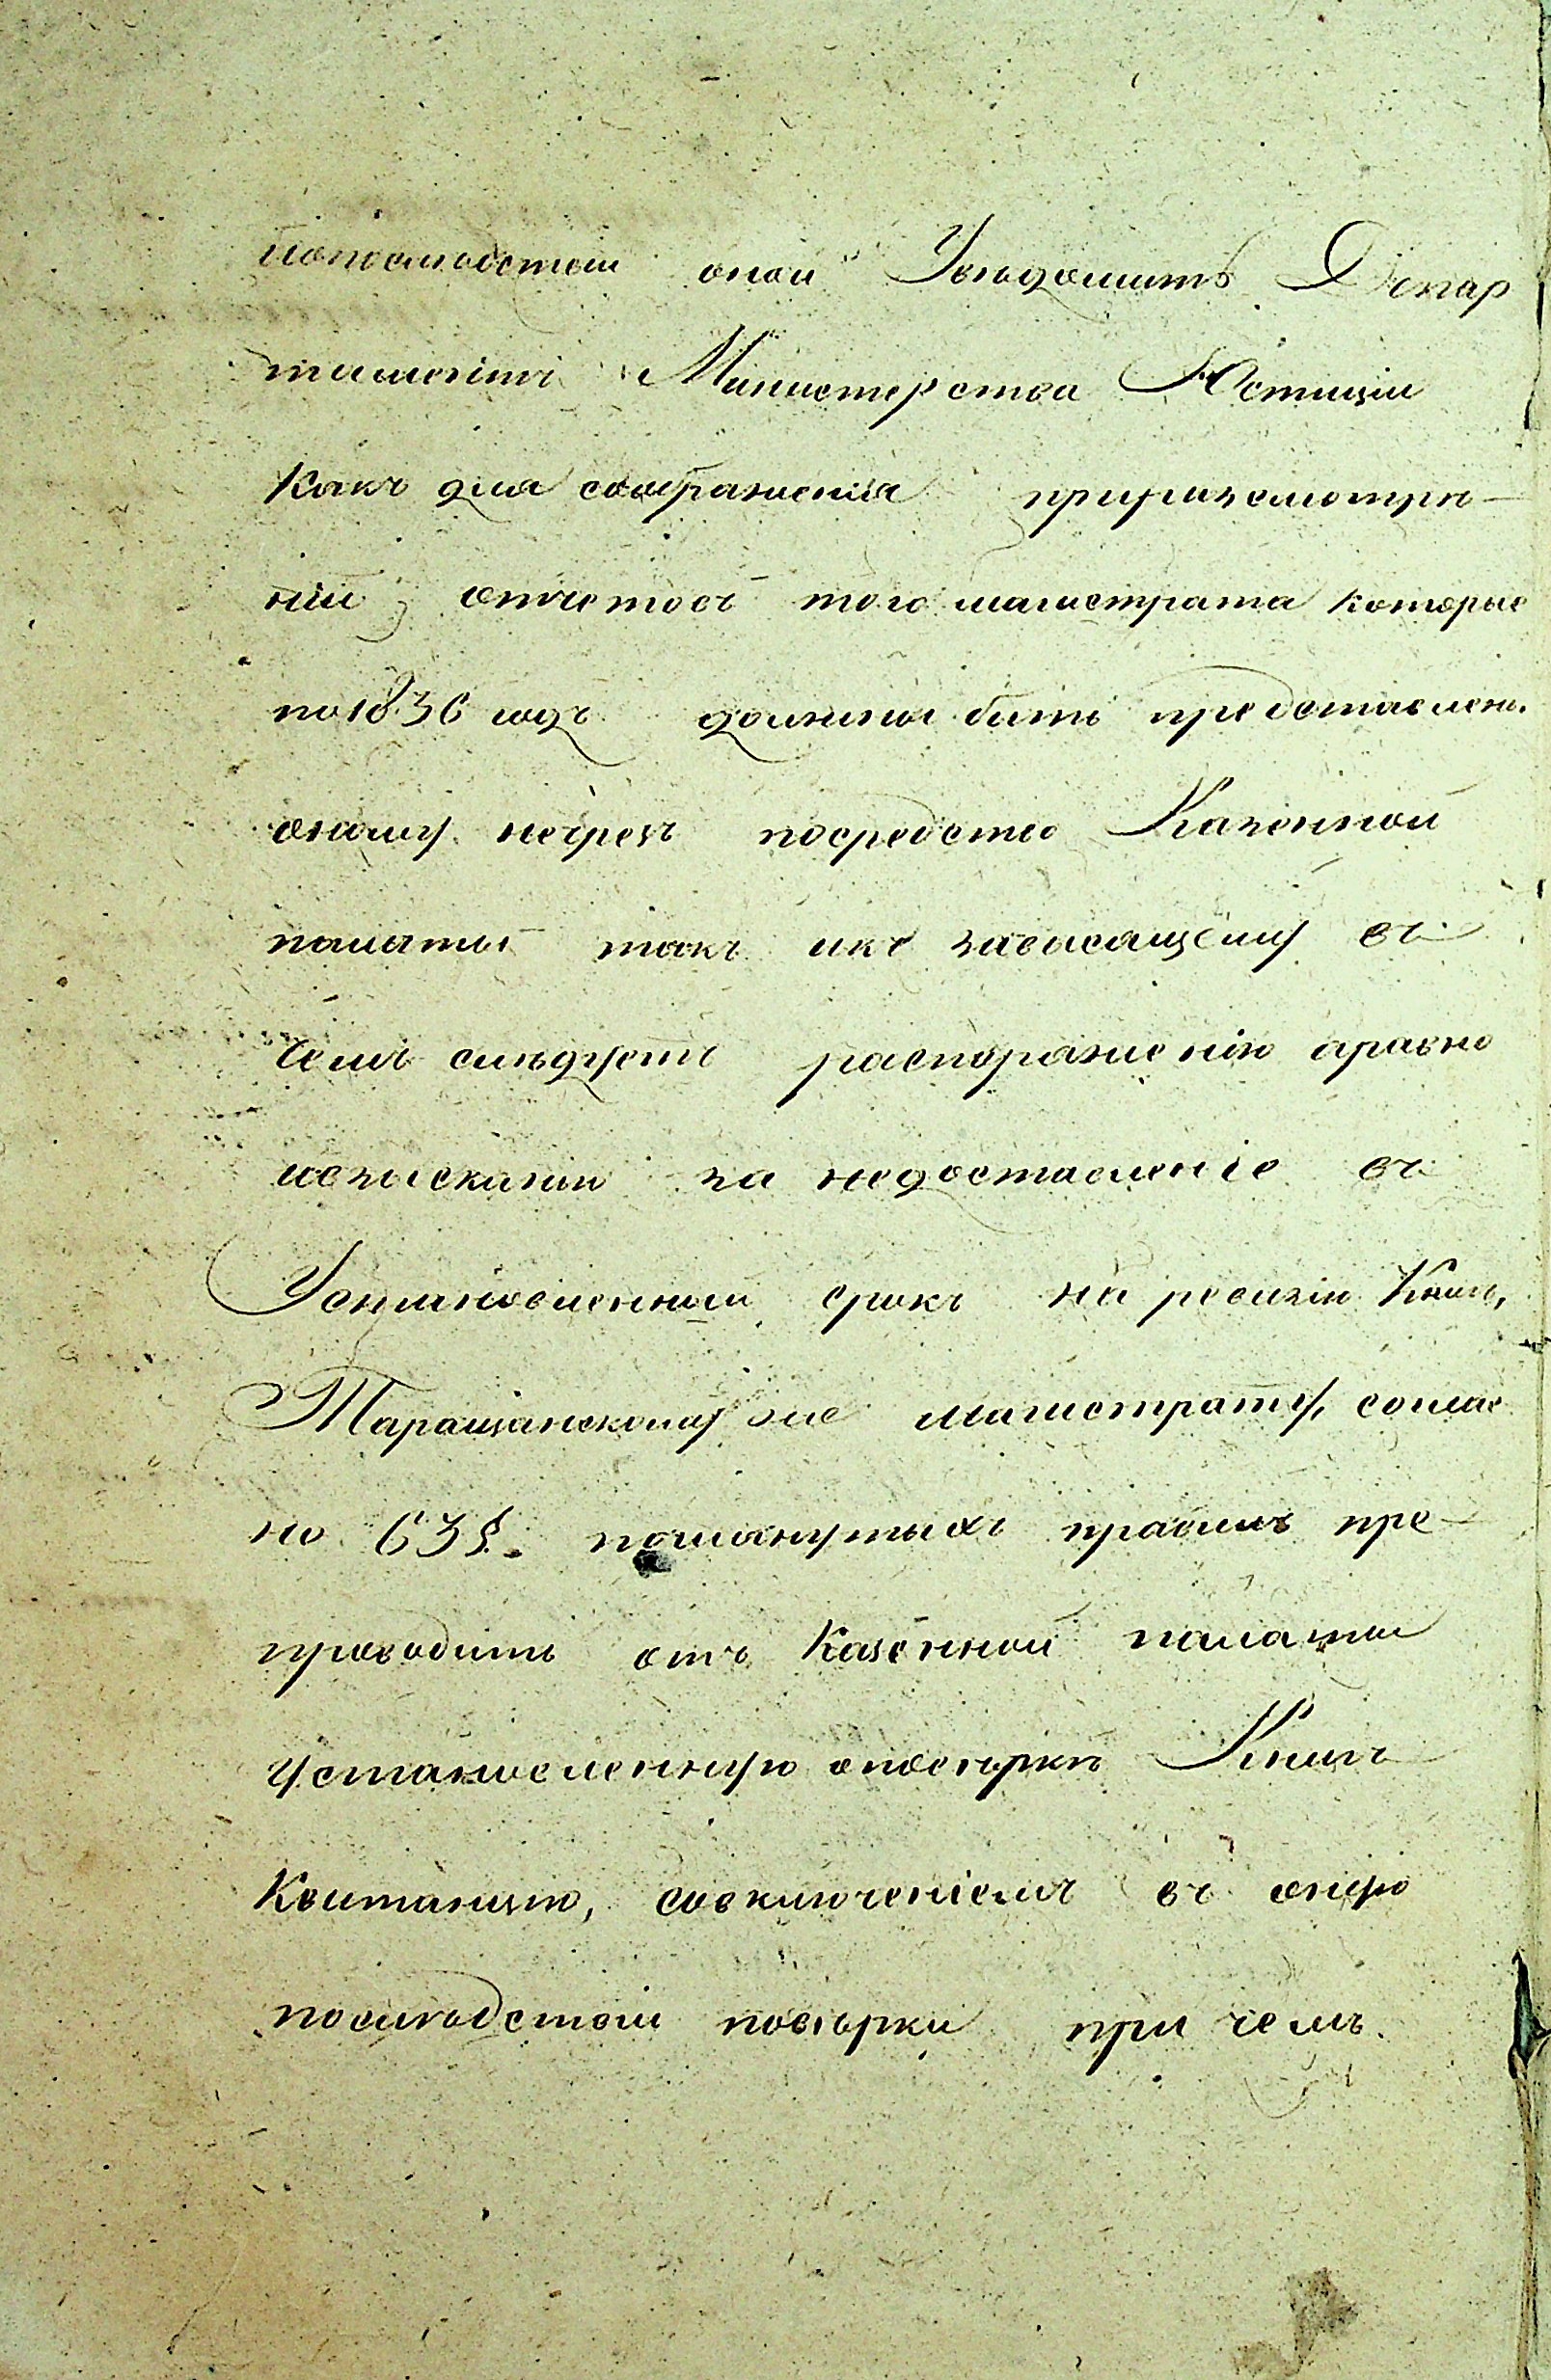 попоследствіи оной Увѣдомить Депар
таментъ Министерства Юстиціи
Какъ для соображенія приразсмотрѣ-
ніи отчетовъ того магистрата которые
по 1836 годъ должны быть представлен.
оному нечрезъ посредство Казенной
палаты такъ икъ зависящему въ
чемъ слѣдуетъ распоряженію аравно
ивзысканію за недоставленіе въ
Установленный срокъ на ревизію Книгъ,
Таращанскому же магистрату, соглас
но 63§. помянутыхъ правилъ пре-
проводить отъ Казенной палаты
установленную оповѣркѣ Книгъ
Квитанцію, совключеніемъ въ оную
послѣдствій повѣрки при чемъ.